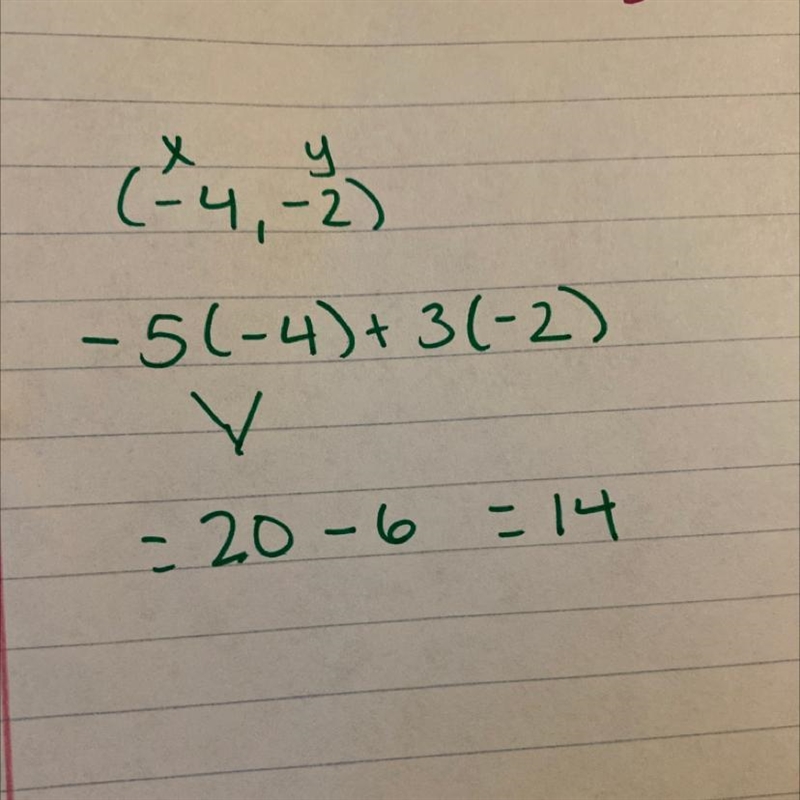 x y
(-4, -2)
-5(-4)+3(-2)
V
= 20 - 6 = 14